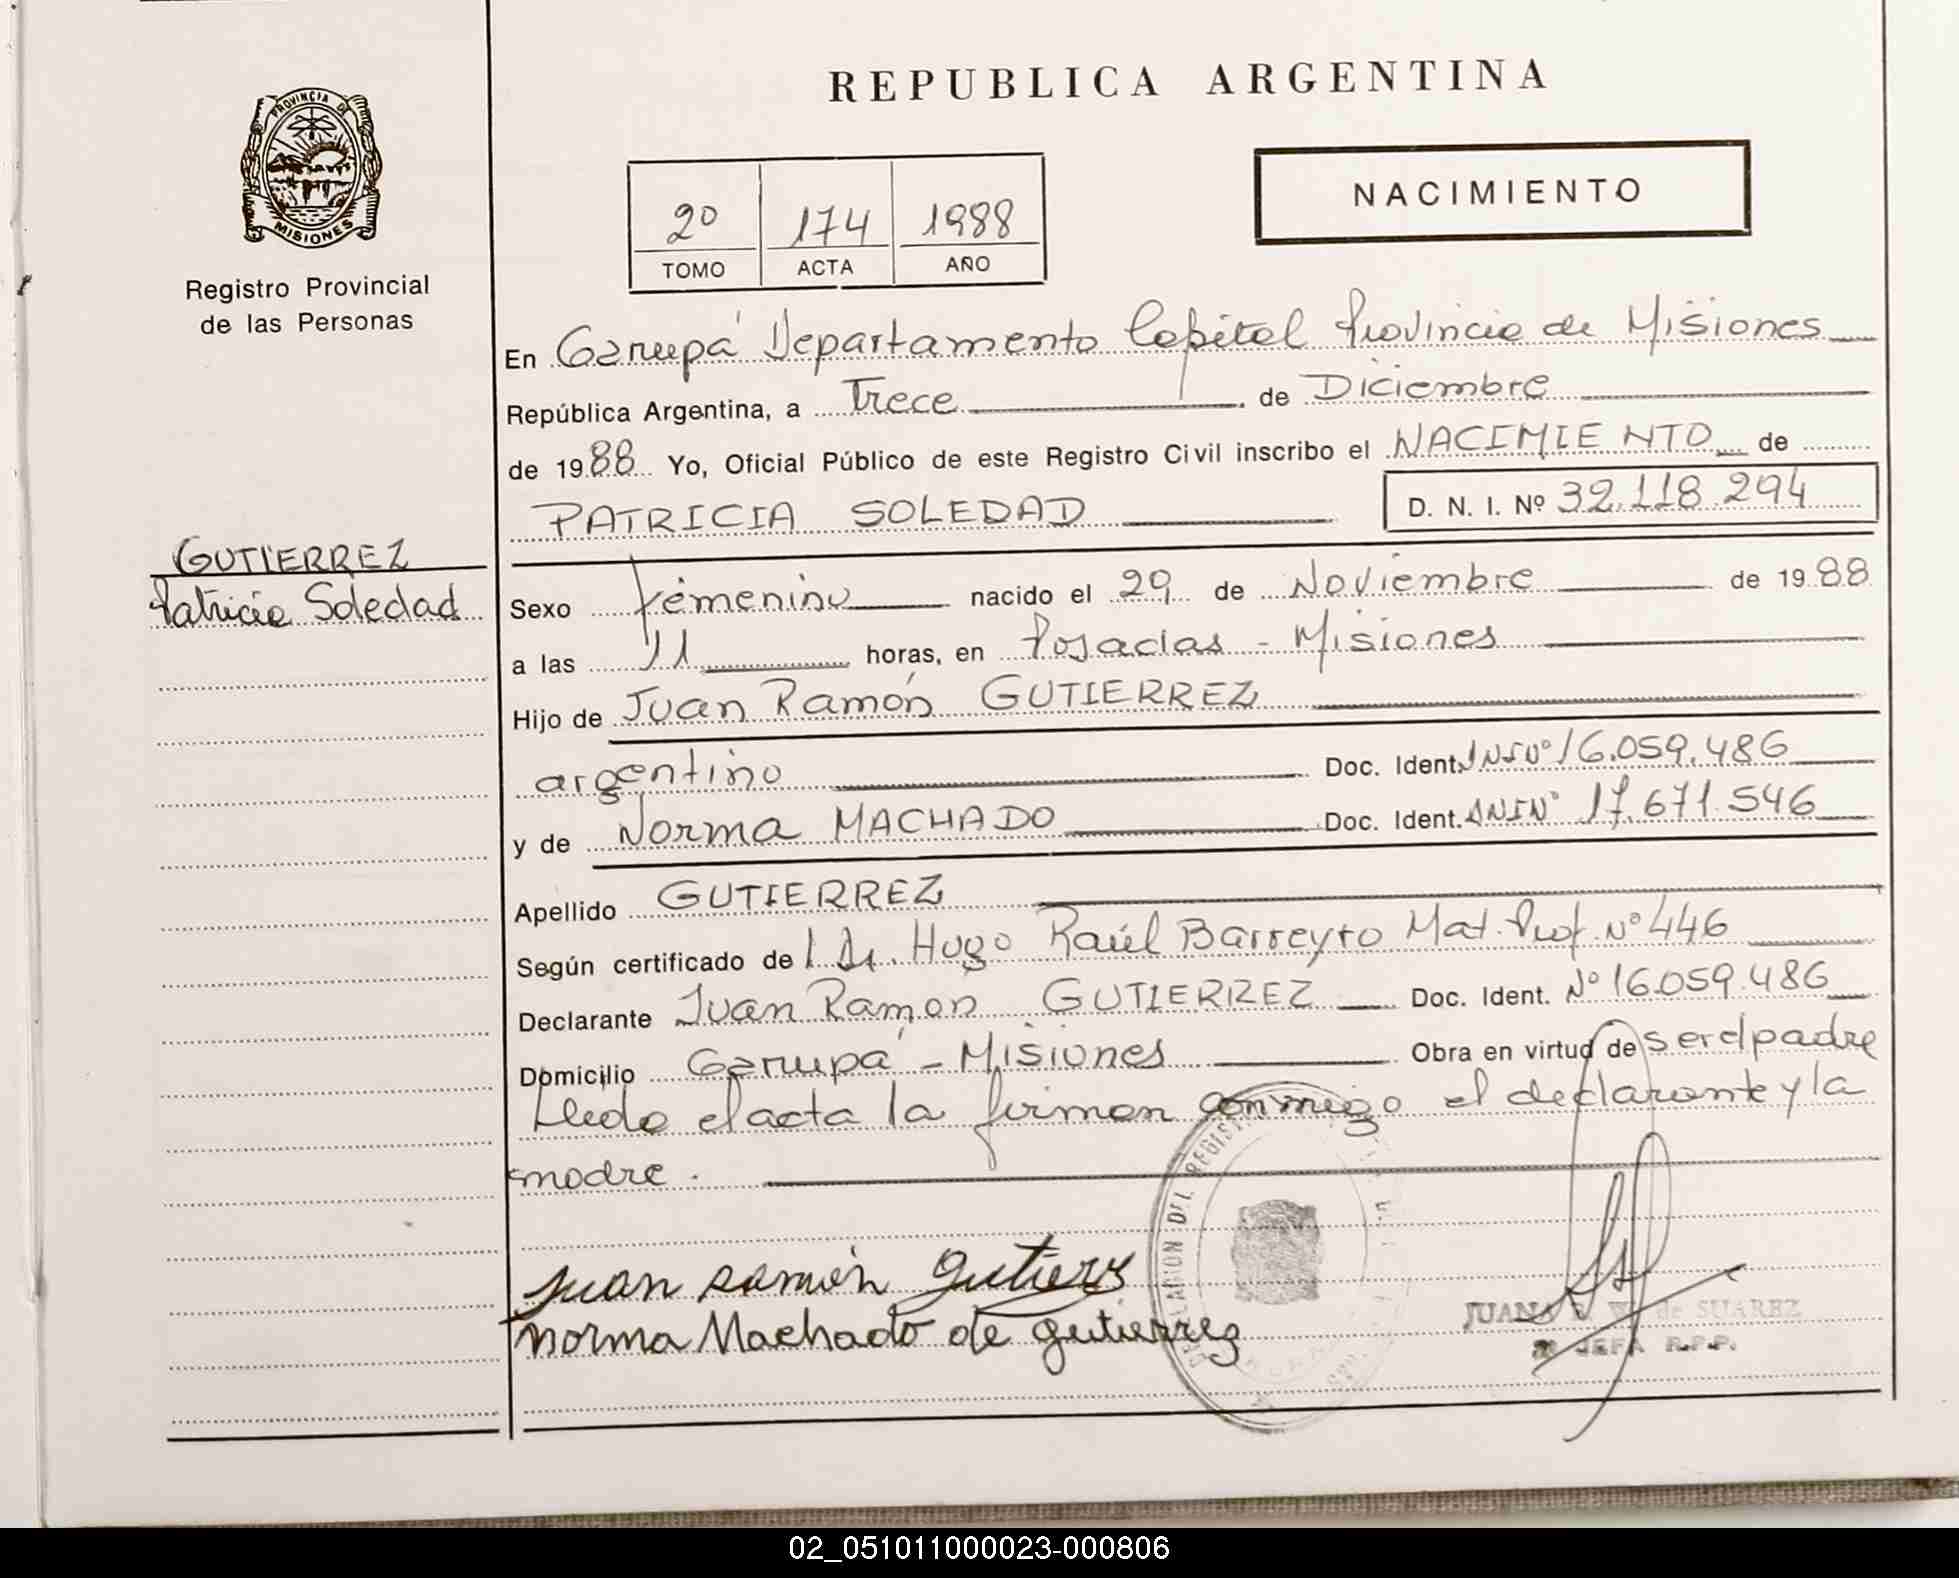 PROVINCIA DE
MISIONES
Registro Provincial
de las Personas
GUTIERREZ
Patricia Soledad
REPUBLICA ARGENTINA
NACIMIENTO
2º 174 1988
TOMO ACTA AÑO
En Garupá Departamento Capital Provincia de Misiones
República Argentina, a Trece, de Diciembre
de 1988 Yo, Oficial Público de este Registro Civil inscribo el NACIMIENTO de
PATRICIA SOLEDAD D. N. I. Nº 32.118.294
Sexo femenino nacido el 29 de Noviembre de 1988
a las 11 horas, en Posadas - Misiones
Hijo de Juan Ramón GUTIERREZ
argentino Doc. Ident. DNI Nº 16.059.486
y de Norma MACHADO Doc. Ident. DNI Nº 17.671.546
Apellido GUTIERREZ
Según certificado de l Dr. Hugo Raúl Barreyro Mat. Prof. Nº 446
Declarante Juan Ramón GUTIERREZ Doc. Ident. Nº 16.059.486
Domicilio Garupá - Misiones Obra en virtud de ser el padre
Leído el acta la firman conmigo el declarante y la
madre.
Juan Ramón Gutierrez
Norma Machado de gutierrez
JUANA de SUAREZ
JEFA R.P.P.
02_051011000023-000806